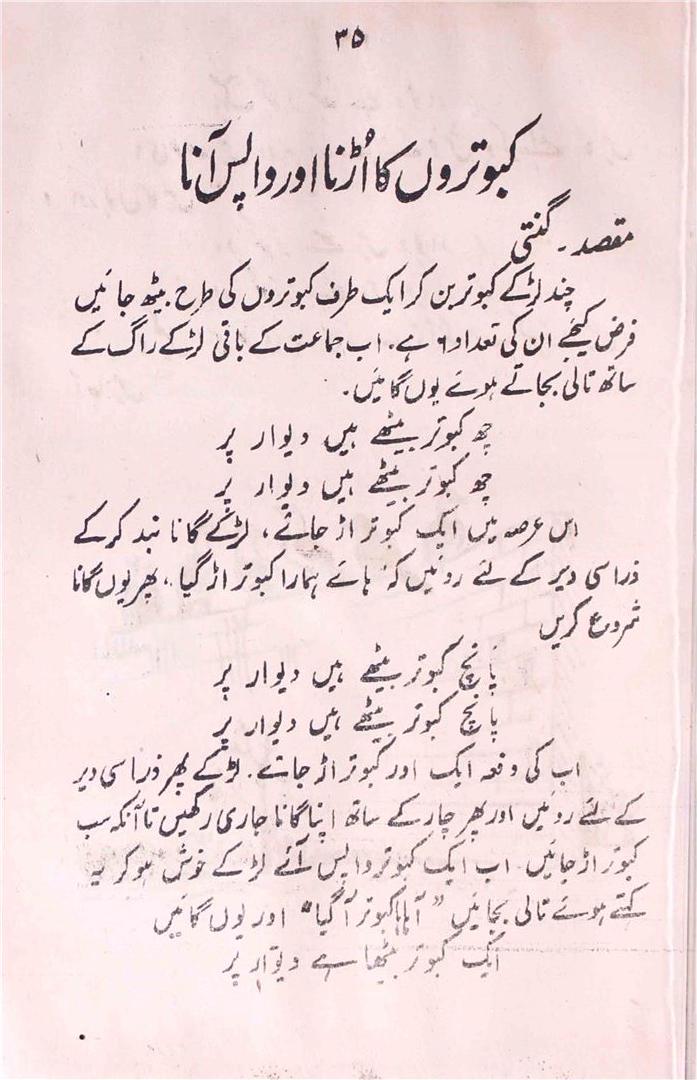 ۳۵
کبوتروں کا اُڑنا اور واپس آنا
مقصد۔ گنتی
چند لڑکے کبوتر بن کر ایک طرف کبوتروں کی طرح بیٹھ جائیں
فرض کیجئے ان کی تعداد ۶ ہے۔ اب جماعت کے باقی لڑکے راگ کے
ساتھ تالی بجاتے ہوئے یوں گائیں۔
چھ کبوتر بیٹھے ہیں دیوار پر
چھ کبوتر بیٹھے ہیں دیوار پر
اس عرصہ میں ایک کبوتر اڑ جائے، لڑکے گانا بند کر کے
ذرا سی دیر کے لئے روئیں کہ ہائے ہمارا کبوتر اڑ گیا، پھر یوں گانا
شروع کریں
پانچ کبوتر بیٹھے ہیں دیوار پر
پانچ کبوتر بیٹھے ہیں دیوار پر
اب کی دفعہ ایک اور کبوتر اڑ جائے۔ لڑکے پھر ذرا سی دیر
کے لئے روئیں اور پھر چار کے ساتھ اپنا گانا جاری رکھیں تا آنکہ سب
کبوتر اڑ جائیں۔ اب ایک کبوتر واپس آئے لڑکے خوش ہو کر یہ
کہتے ہوئے تالی بجائیں "آہا ہا کبوتر آ گیا" اور یوں گائیں
ایک کبوتر بیٹھا ہے دیوار پر